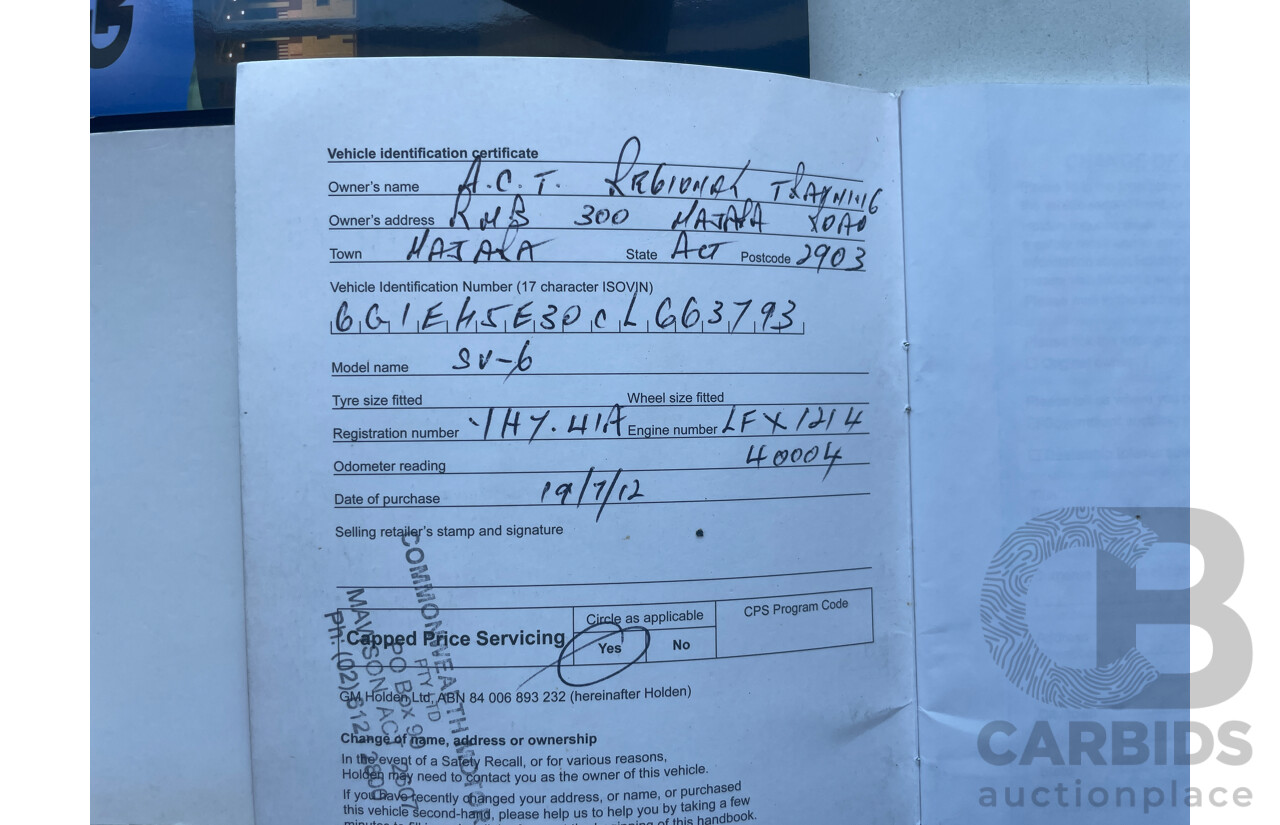 Vehicle identification certificate
Owner's name A.C.T. REGIONAL TRAINING
Owner's address RMB 300 MAJARA ROAD
Town MAJARA State ACT Postcode 2903
Vehicle Identification Number (17 character ISOVIN)
6G1EK5E30CL663793
Model name SV-6
Tyre size fitted Wheel size fitted
Registration number YHY.41A Engine number LFX1214
40004
Odometer reading
Date of purchase 19/7/12
Selling retailer's stamp and signature
COMMONWEALTH MOTOR
PTY LTD
PO Box 90
MAWSON ACT 2607
Ph: (02)
Capped Price Servicing Circle as applicable CPS Program Code
Yes No
GM Holden Ltd, ABN 84 006 893 232 (hereinafter Holden)
Change of name, address or ownership
In the event of a Safety Recall, or for various reasons,
Holden may need to contact you as the owner of this vehicle.
If you have recently changed your address, or name, or purchased
this vehicle second-hand, please help us to help you by taking a few
of this handbook.
CB
CARBIDS
auctionplace